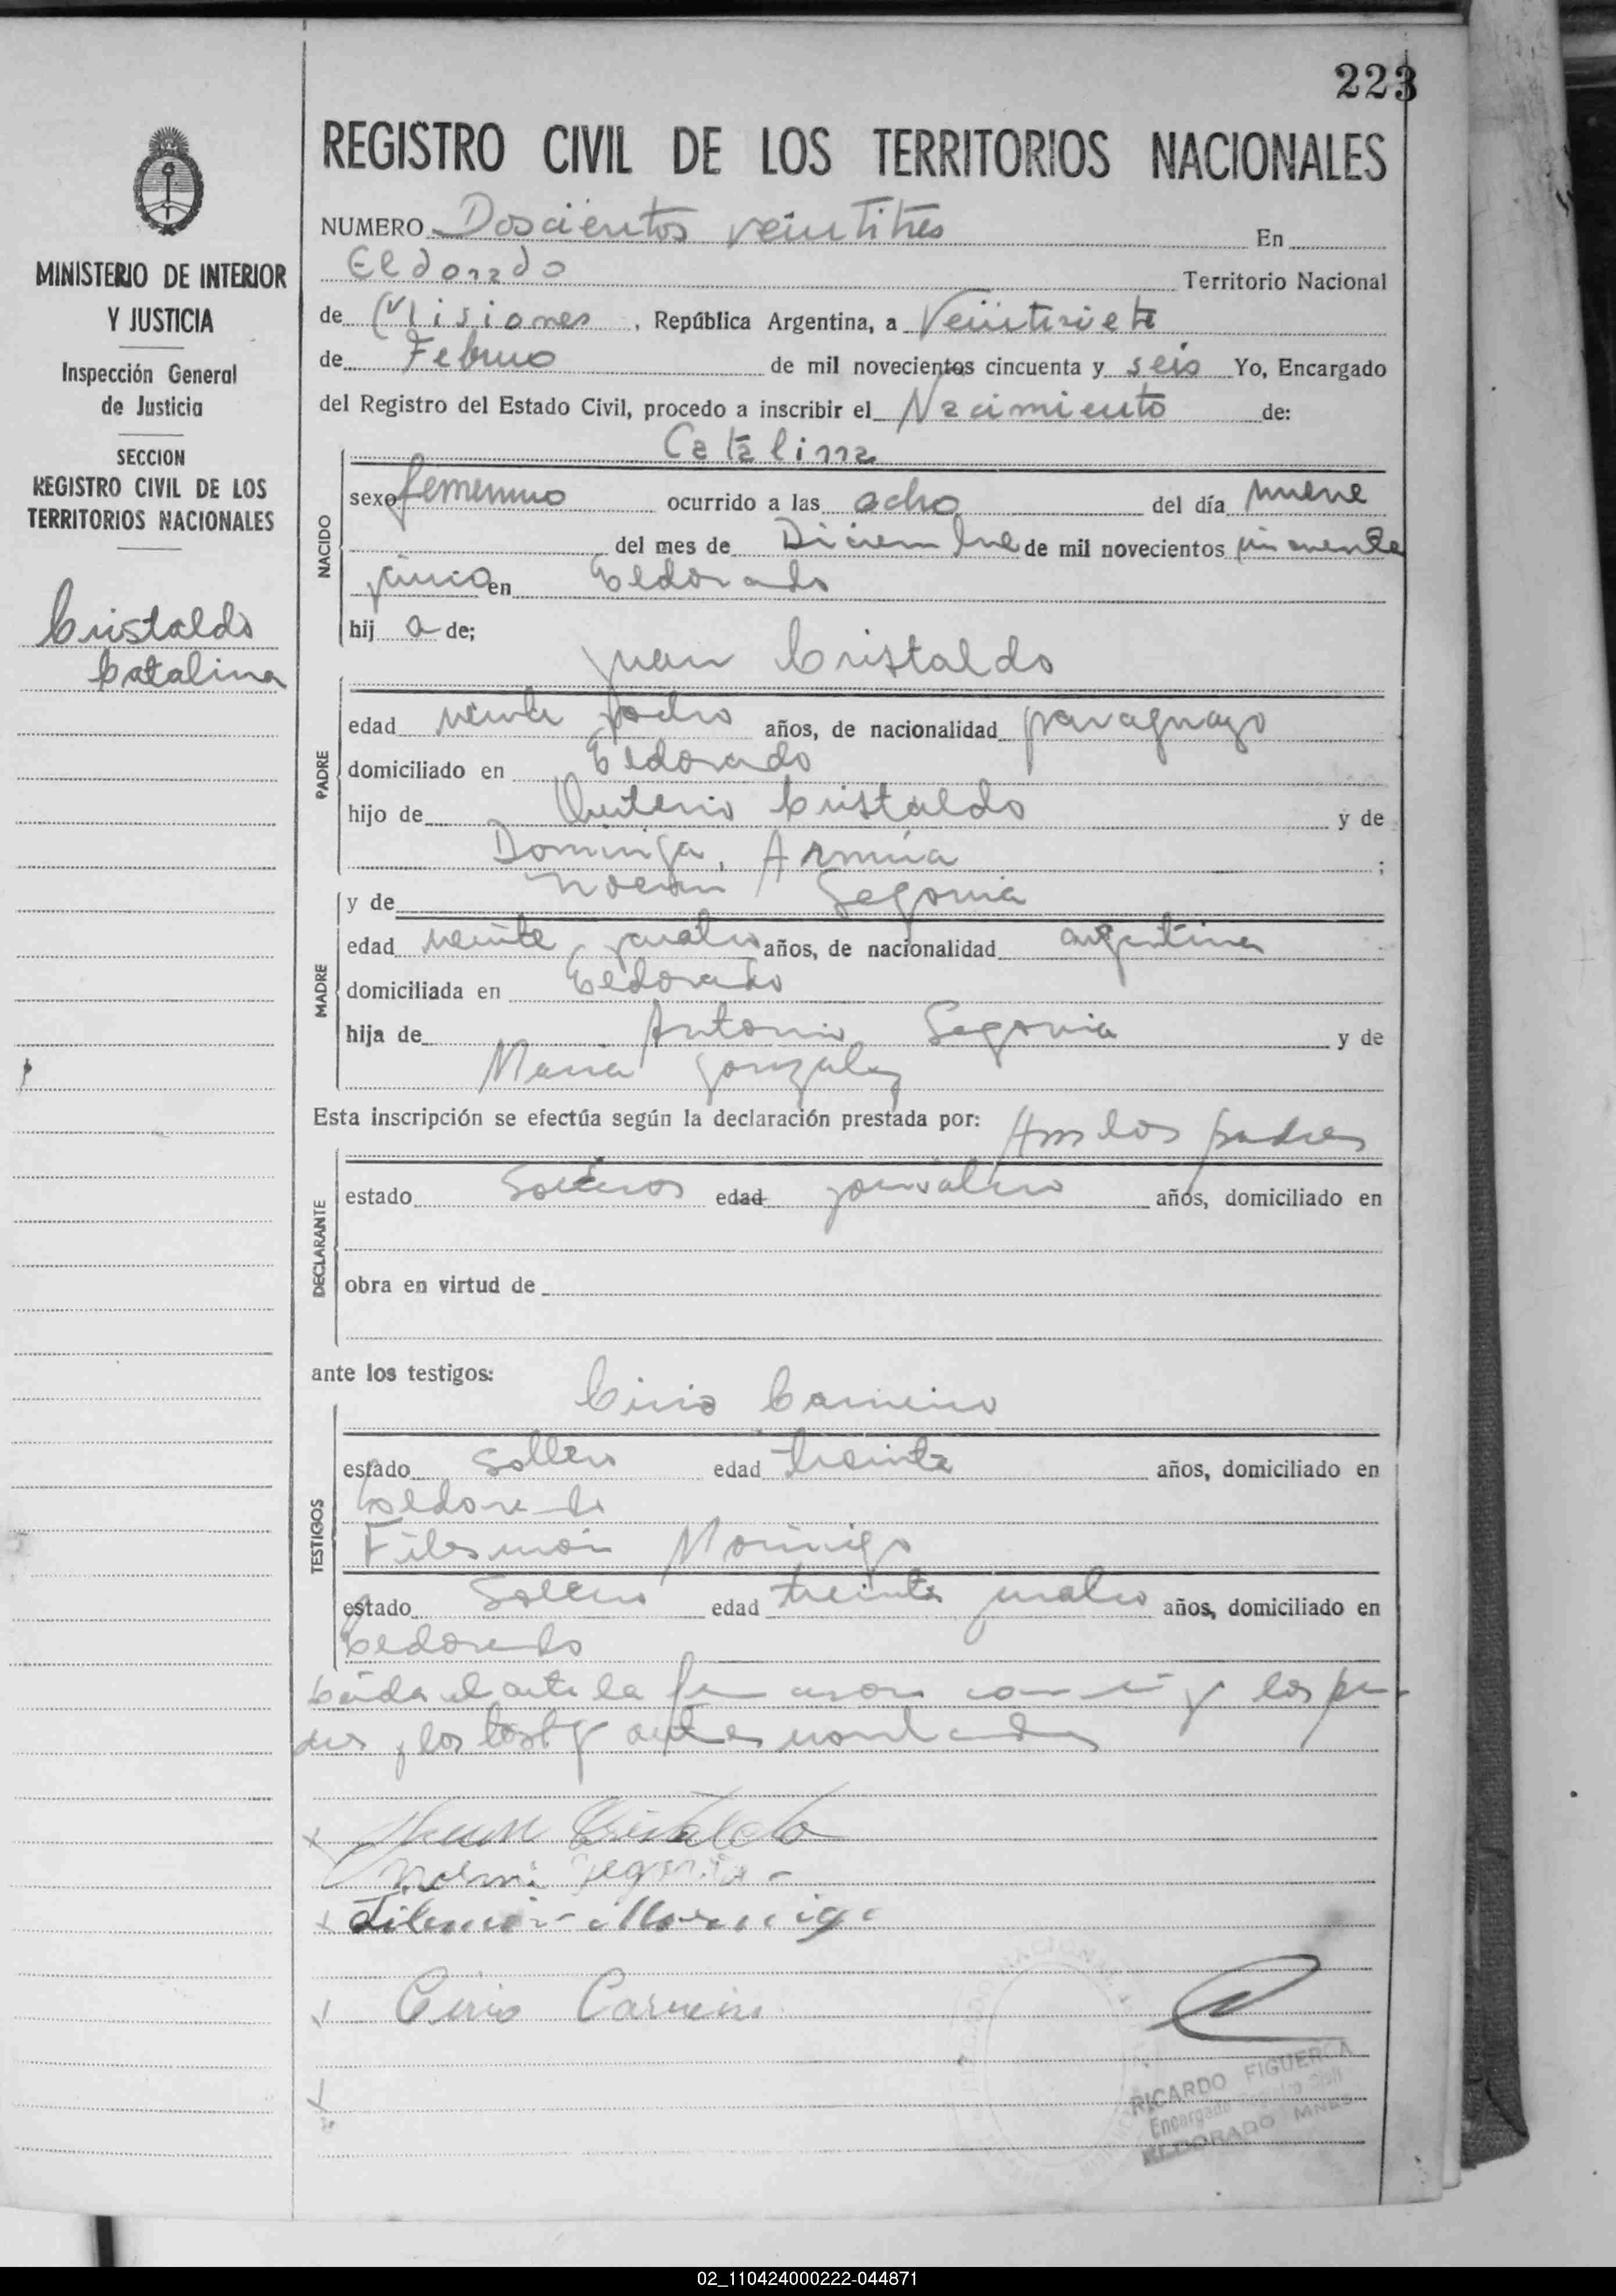 223
REGISTRO CIVIL DE LOS TERRITORIOS NACIONALES
MINISTERIO DE INTERIOR
Y JUSTICIA
Inspección General
de Justicia
SECCION
REGISTRO CIVIL DE LOS
TERRITORIOS NACIONALES
Cristaldo
Catalina
NUMERO Doscientos veintitres En
Eldorado Territorio Nacional
de Misiones, República Argentina, a Veintisiete
de Febrero de mil novecientos cincuenta y seis Yo, Encargado
del Registro del Estado Civil, procedo a inscribir el Nacimiento de:
Catalina
NACIDO
sexo femenino ocurrido a las ocho del día nueve
del mes de Diciembre de mil novecientos cincuenta
cinco en Eldorado
hij a de;
Juan Cristaldo
PADRE
edad veinte ocho años, de nacionalidad paraguayo
domiciliado en Eldorado
hijo de Cristaldo y de
Dominga, Armúa ;
y de Segovia
MADRE
edad veinte cuatro años, de nacionalidad argentina
domiciliada en Eldorado
hija de Antonio Segovia y de
Maria Gonzalez
Esta inscripción se efectúa según la declaración prestada por: Ambos padres
DECLARANTE
estado Solteros edad años, domiciliado en
obra en virtud de
ante los testigos:
Cirio Carneiro
TESTIGOS
estado soltero edad treinta años, domiciliado en
Eldorado
Filemón Morinigo
estado Soltero edad treinta cuatro años, domiciliado en
Eldorado
Leída el acta la con los
y los antes
Juan Cristaldo
Segovia
Filemon Morinigo
Cirio Carneiro
RICARDO FIGUEROA
Encargado Registro Civil
ELDORADO MNES
02_110424000222-044871